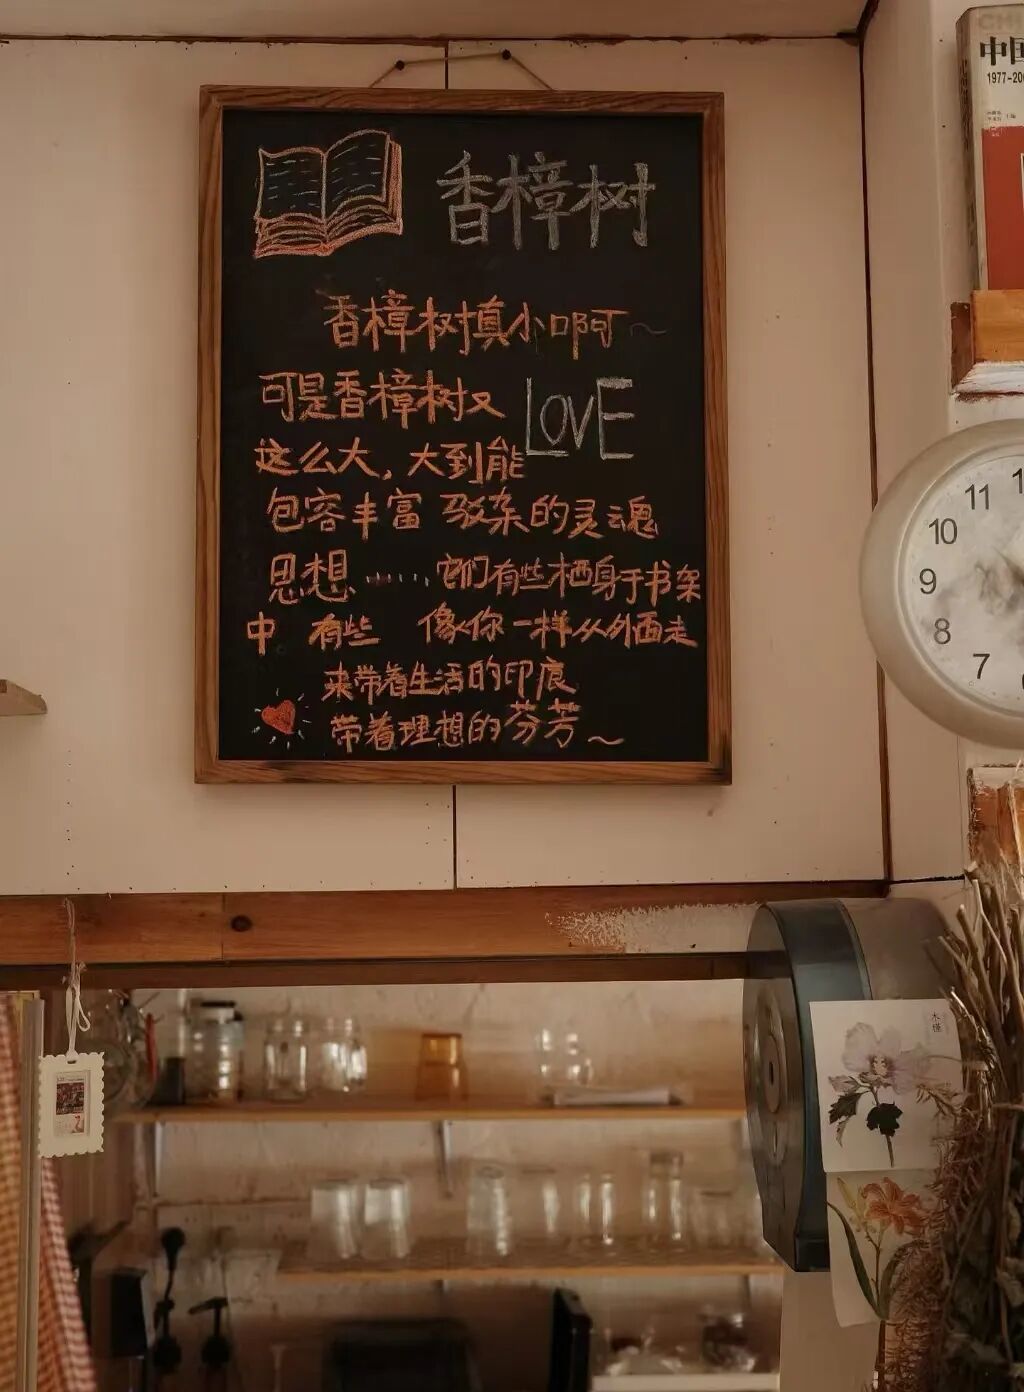 香樟树
香樟树填小啊~
可是香樟树又
LOVE
这么大,大到能
包容丰富 驳杂的灵魂
思想…… 它们有些栖身于书架
中 有些 像你一样从外面走
来带着生活的印痕
带着理想的芬芳~
中国
1977-20
11
10
9
8
7
木槿